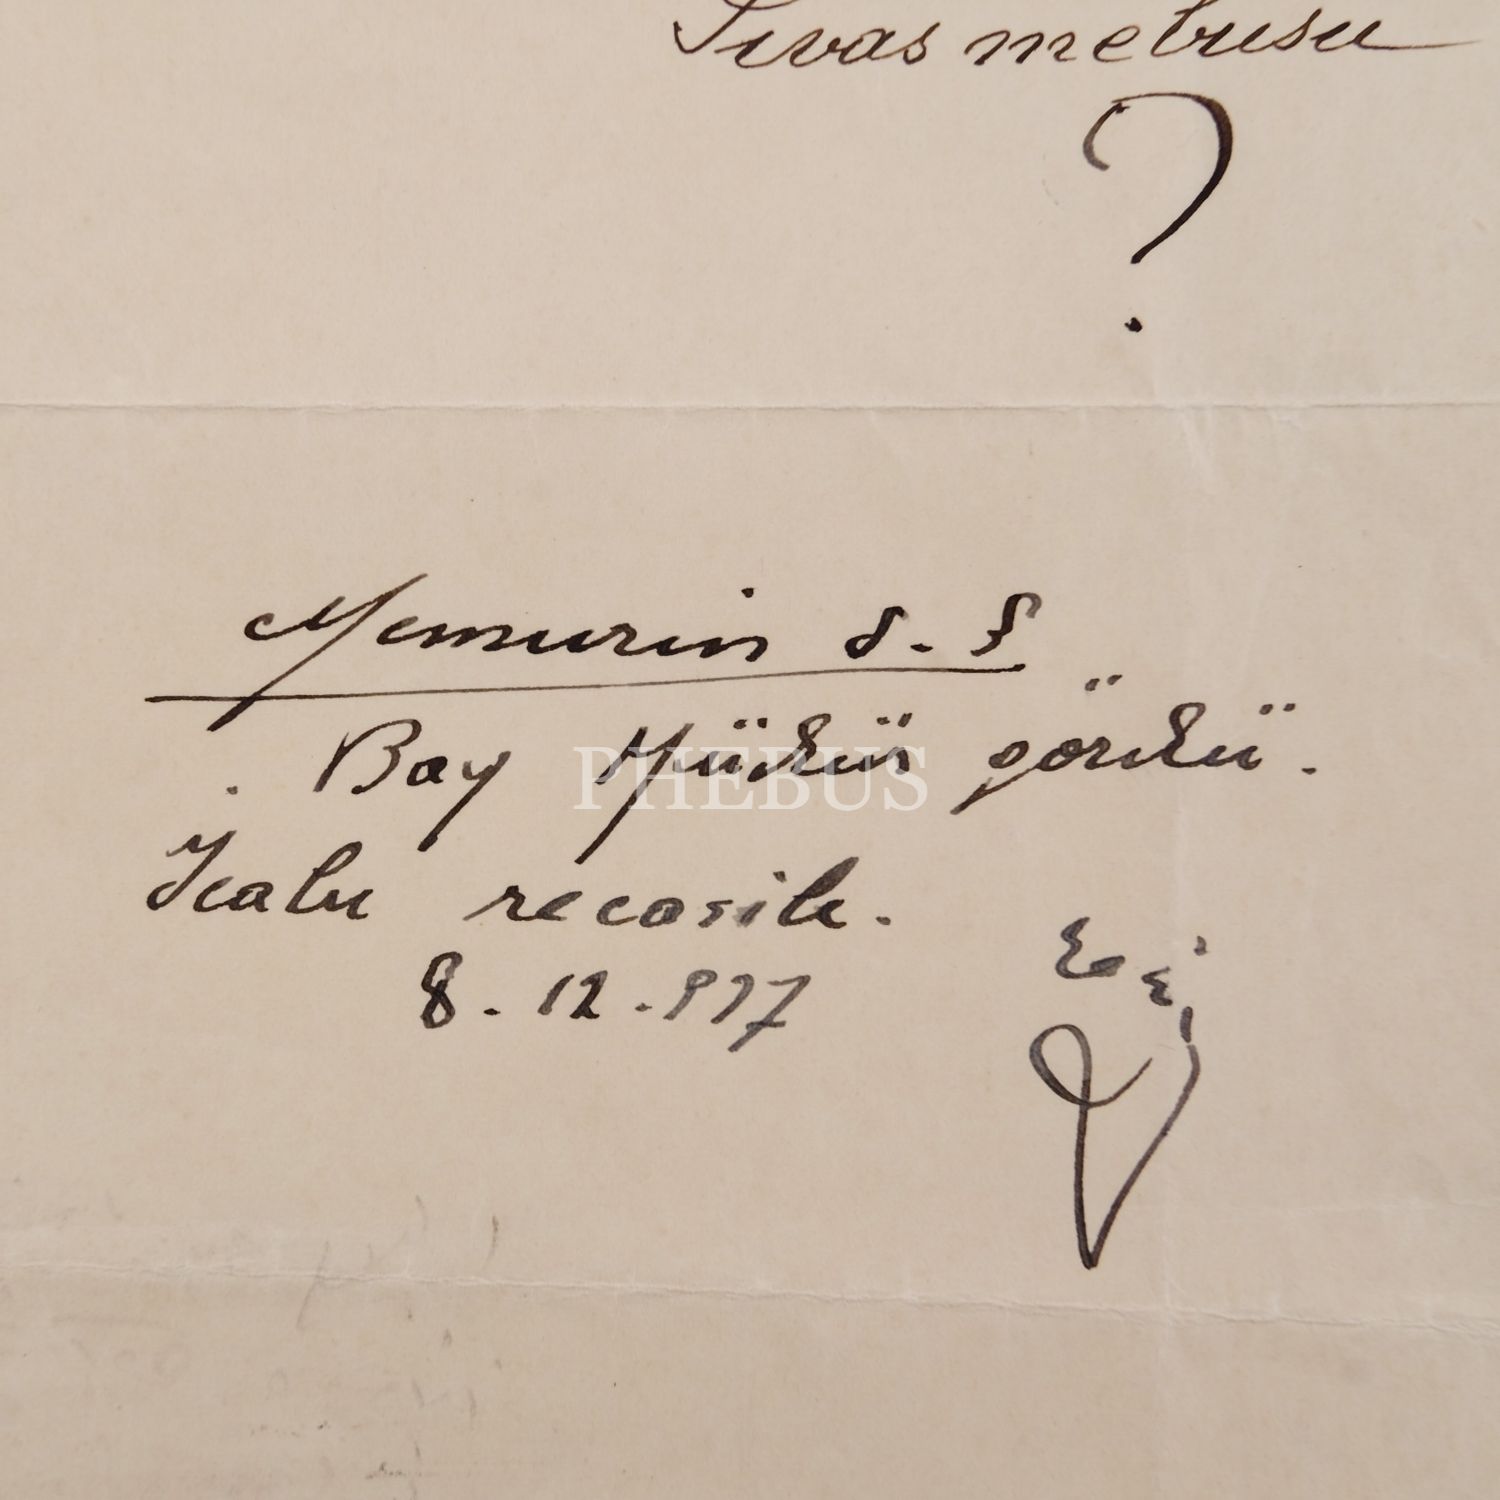 Sivas mebusu
?
Memurin
. Bay Müdür gördü.
PHEBUS
Icabı ricasile.
8.12.937